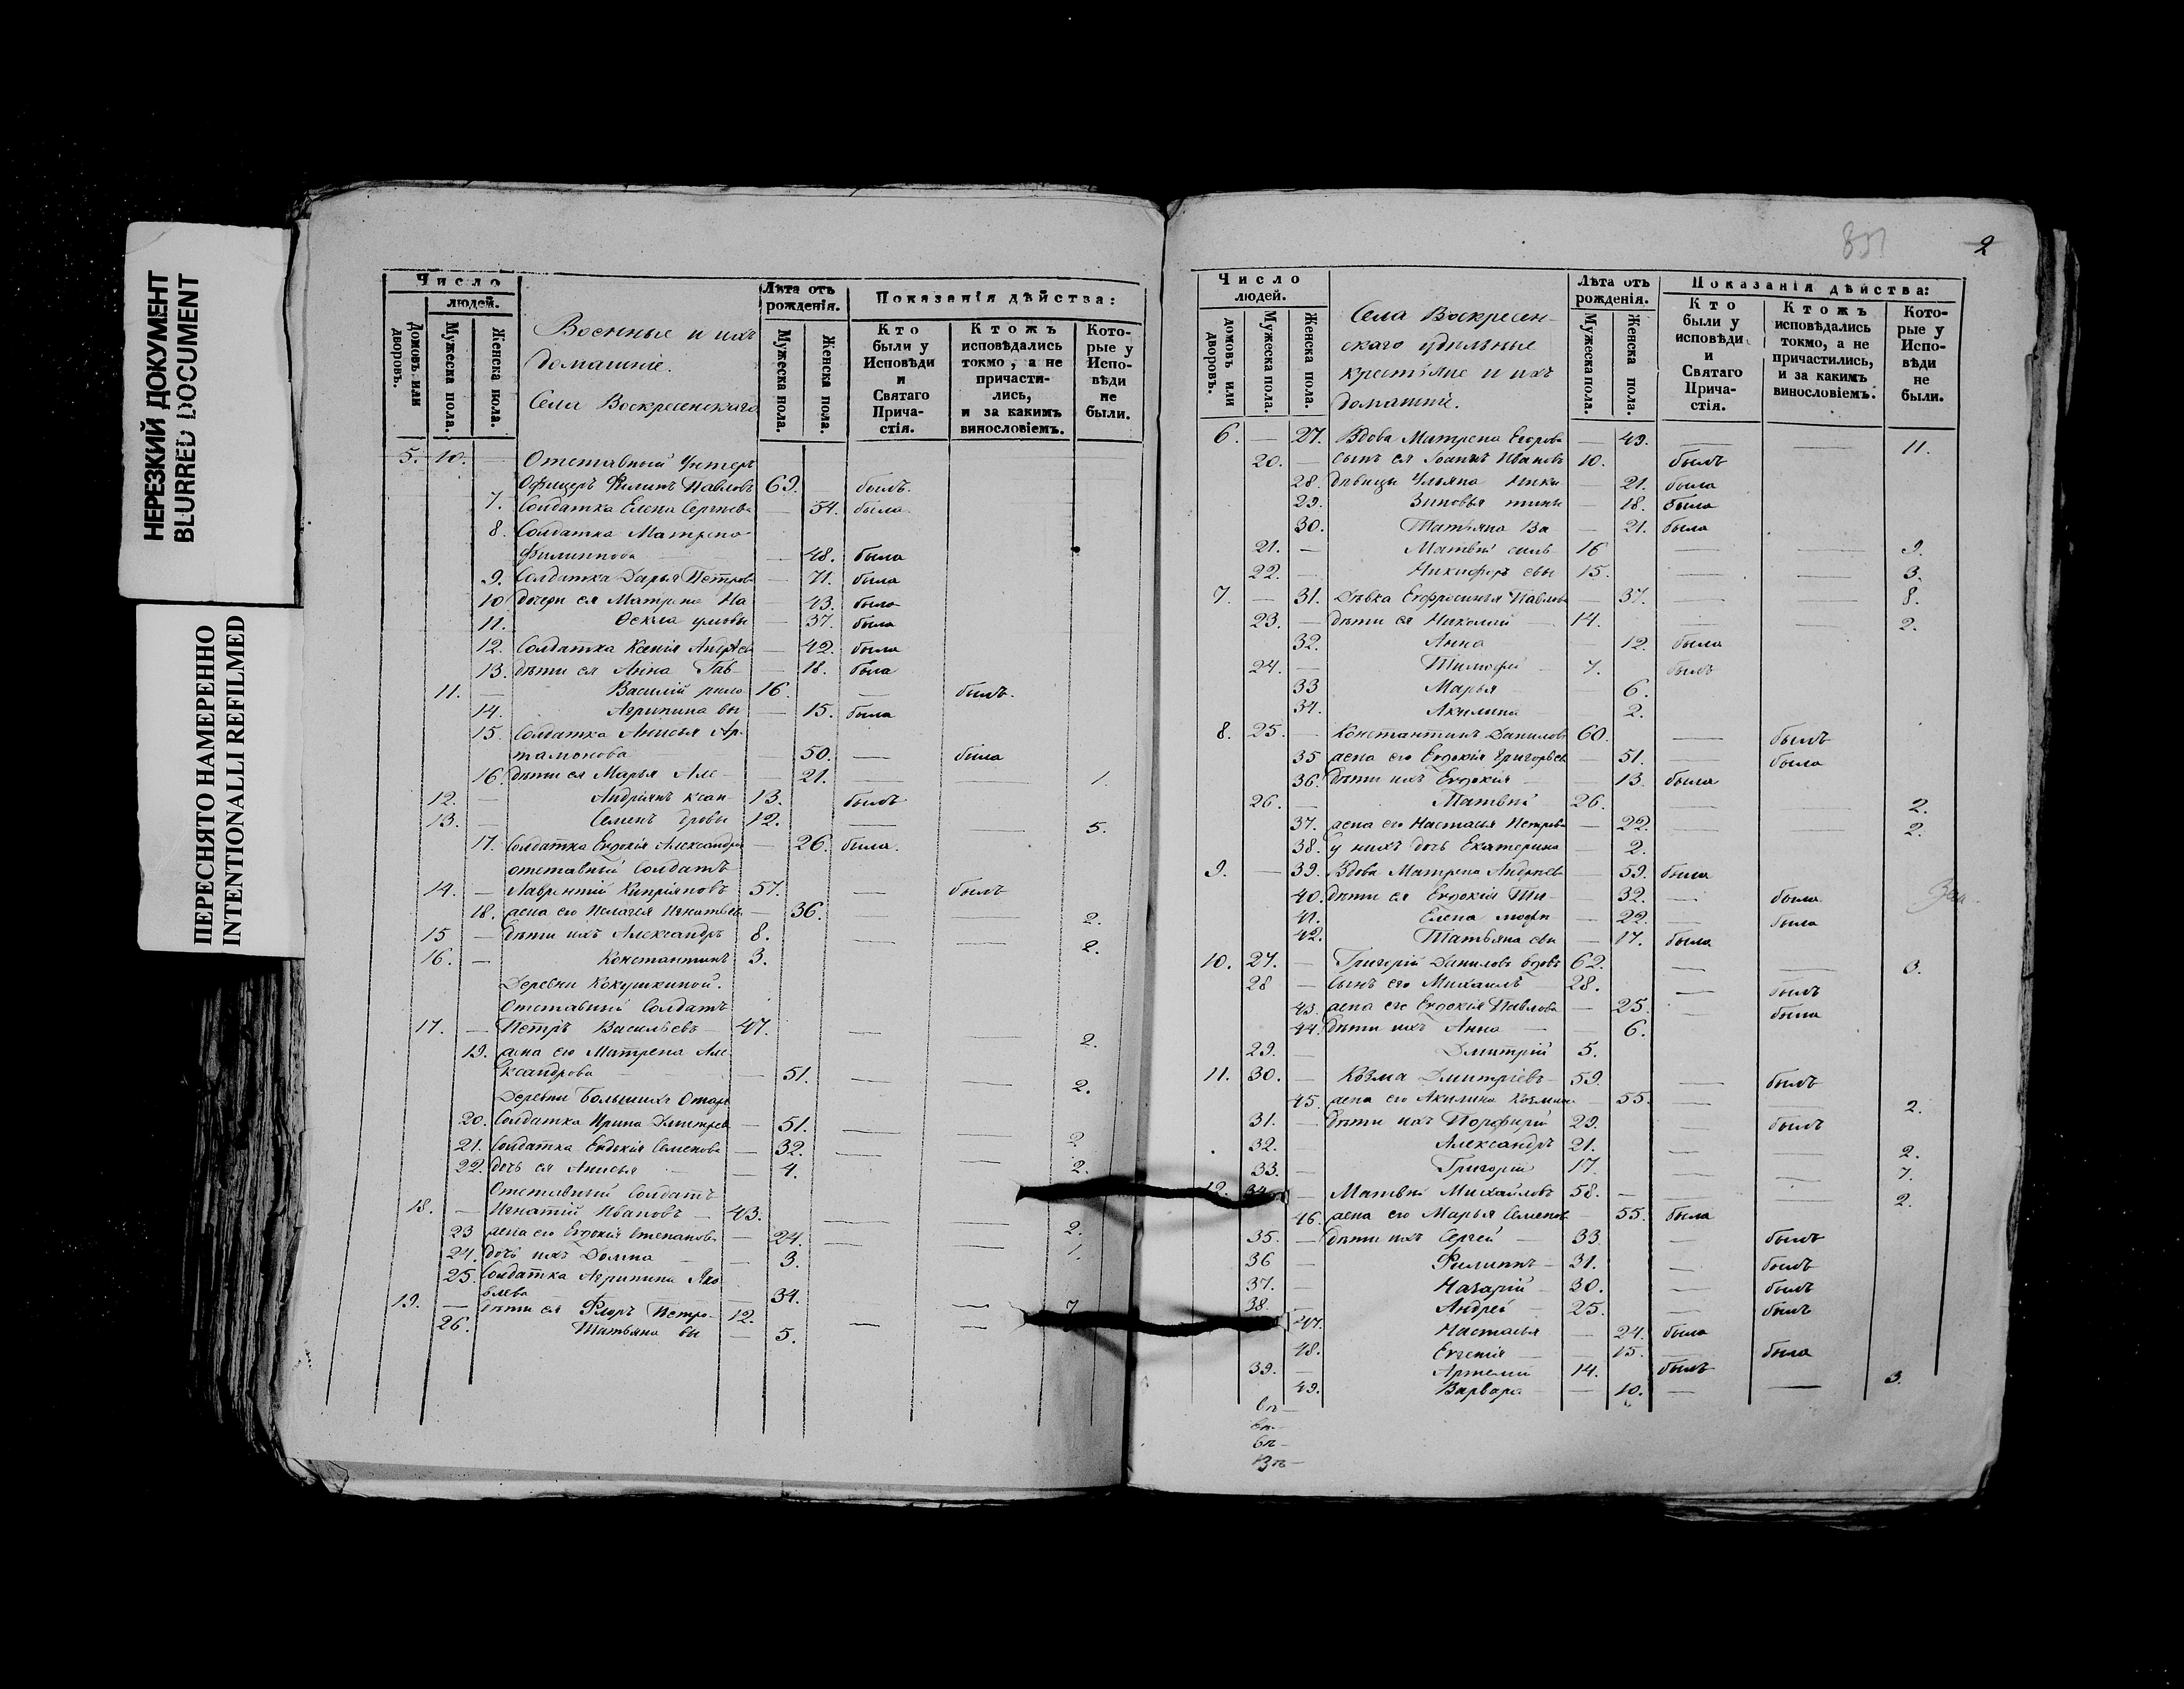 НЕРЕЗКИЙ ДОКУМЕНТ
BLURRED DOCUMENT
ПЕРЕСНЯТО НАМЕРЕННО
INTENTIONALLI REFILMED
Число
людей.
Домовъ или дворовъ.
Мужеска пола.
Женска пола.
Военные и ихъ
домашніе.
Села Воскресенскаго
Лѣта отъ рожденія.
Мужеска пола.
Женска пола.
Показанія дѣйства:
Кто были у Исповѣди и Святаго Причастія.
Ктожъ исповѣдались токмо, а не причастились, и за какимъ винословіемъ.
Которые у Исповѣди не были.
5. 10. — Отставный Унтеръ
Офицеръ Филипъ Павловъ 69. — былъ.
7. Солдатка Елена Сергѣева — 54. была
8. Солдатка Матрена
Филиппова — 48. была
9. Солдатка Дарья Петрова — 71. была
10 дочери ея Матрена На — 43. была
11. Фекла умовы — 37. была
12. Солдатка Ксенія Андрѣева — 42. была
13. дѣти ея Анна Гав — 18. была
11. — Василій рило 16. — былъ.
14. Агрипина вы — 15. была
15. Солдатка Анисья Ар-
тамонова 50. — была
16. дѣти ея Марья Але — 21. — — 1.
12. — Андріянъ ксан- 13. былъ
13. — Семенъ дровы 12. — — 5.
17. Солдатка Евдокія Александро — 26. была.
отставный Солдатъ
14. — Лаврентій Кипріяновъ 57. — былъ
18. жена его Пелагея Игнатьева — 36. — — 2.
15 — дѣти ихъ Александръ 8. — — 2.
16. — Константинъ 3.
Деревни Кокушкиной.
Отставный Солдатъ
17. — Петръ Васильевъ — 47. — — 2.
19. жена его Матрена Але
ксандрова — 51. — — 2.
Деревни Большихъ Отарь
20. Солдатка Ирина Дмитрев — 51. — — 2
21. Солдатка Евдокія Семенова — 32. — — 2.
22. дочь ея Анисья — 4.
Отставный Солдатъ
18. — Игнатій Ивановъ — 43. — — 2.
23 жена его Евдокія Степанова — 24. — — 1.
24. дочь ихъ Домна — 3.
25. Солдатка Агрипина Яко
влева — 34. — 7
19. — дѣти ея Флоръ Петро- 12. — —
26. Татьяна вы — 5.
851
2
Число
людей.
домовъ или дворовъ.
Мужеска пола.
Женска пола.
Села Воскресен-
скаго удѣльные
крестьяне и ихъ
домашніе.
Лѣта отъ рожденія.
Мужеска пола.
Женска пола.
Показанія дѣйства:
Кто были у исповѣди и Святаго Причастія.
Ктожъ исповѣдались токмо, а не причастились, и за какимъ винословіемъ.
Которые у Исповѣди не были.
6. — 27. Вдова Матрена Егорова — 49. — — 11.
20. — сынъ ея Іоаннъ Ивановъ 10. былъ
28. дѣвицы Ульяна Ники — 21. была
29. Зиновья тины — 18. была
30. Татьяна Ва — 21. была
21. — Матвѣй силь- 16 — — 9.
22. — Никифоръ евы 15. — — 3.
7. — 31. Дѣвка Евфросинья Павлова — 37. — — 8.
23. — дѣти ея Николай — 14. — — 2.
32. Анна — 12. была
24. — Тимофей — 7. былъ
33 Марья — 6.
34. Акилина — 2.
8. 25. — Константинъ Даниловъ 60. — былъ
35 жена его Евдокія Григорьева — 51. — была
36. дѣти ихъ Евдокія — 13. была
26. — Матвѣй 26. — — 2.
37. жена его Настасья Петрова — 22. — — 2.
38. у нихъ дочь Екатерина — 2.
9. — 39. Вдова Матрена Андреев — 59. была
40. дѣти ея Евдокія Ти- — 32. — была
41. Елена мофѣ — 22. — была
42. Татьяна евы — 17. была
10. 27. — Григорій Даниловъ вдовъ 62. — — 3.
28 — сынъ его Михаилъ — 28. — былъ
43. жена его Евдокія Павлова — 25. была
44. дѣти ихъ Анна — 6.
29. — Дмитрій 5.
11. 30. — Козма Дмитріевъ — 59. — былъ
45. жена его Акилина Козмина — 55. — — 2.
31. — дѣти ихъ Порфирій 29. — былъ
32. Александръ 21. — — 2.
33. — Григорій 17. — — 7.
12. 34 — Матвѣй Михайловъ 58. — — 2.
46. жена его Марья Семенов — 55. была
35. — дѣти ихъ Сергей — 33 — былъ
36 — Филиппъ — 31. — былъ
37. — Назарій — 30. — былъ
38. — Андрей — 25. — былъ
47. Настасья — 24. была
48. Евгенія — 15. — была
39. — Артемій 14. былъ
49. Варвара — 10. — — 3.